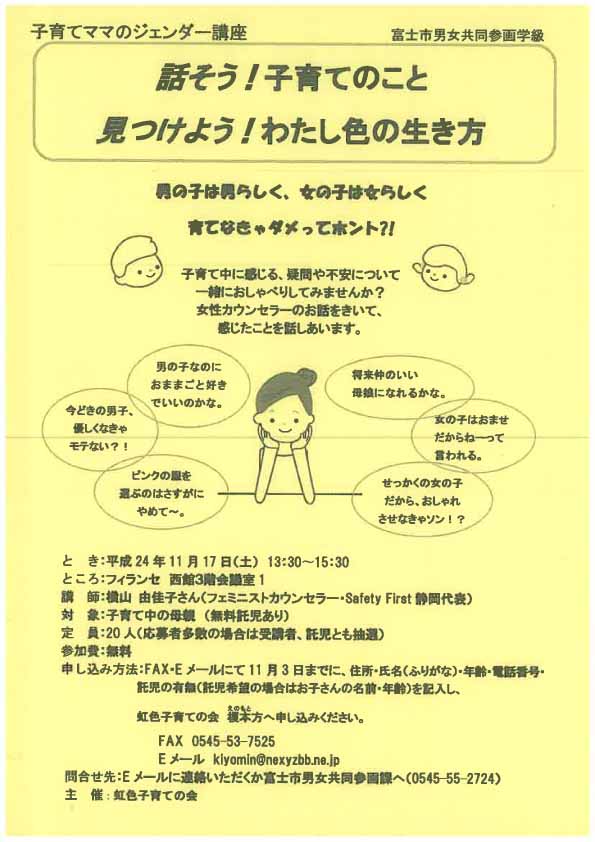 子育てママのジェンダー講座
富士市男女共同参画学級
話そう！子育てのこと
見つけよう！わたし色の生き方
男の子は男らしく、女の子は女らしく
育てなきゃダメってホント?!
子育て中に感じる、疑問や不安について
一緒におしゃべりしてみませんか？
女性カウンセラーのお話をきいて、
感じたことを話しあいます。
男の子なのに
おままごと好き
でいいのかな。
将来仲のいい
母娘になれるかな。
今どきの男子、
優しくなきゃ
モテない？！
女の子はおませ
だからねーって
言われる。
ピンクの服を
選ぶのはさすがに
やめて～。
せっかくの女の子
だから、おしゃれ
させなきゃソン！？
と　き：平成24年11月17日（土） 13:30～15:30
ところ：フィランセ 西館3階会議室1
講　師：横山 由佳子さん（フェミニストカウンセラー・Safety First静岡代表）
対　象：子育て中の母親 （無料託児あり）
定　員：20人（応募者多数の場合は受講者、託児とも抽選）
参加費：無料
申し込み方法：FAX・Eメールにて11月3日までに、住所・氏名（ふりがな）・年齢・電話番号・
託児の有無（託児希望の場合はお子さんの名前・年齢）を記入し、
えのもと
虹色子育ての会 榎本方へ申し込みください。
FAX 0545-53-7525
Eメール kiyomin@nexyzbb.ne.jp
問合せ先：Eメールに連絡いただくか富士市男女共同参画課へ（0545-55-2724）
主　催：虹色子育ての会